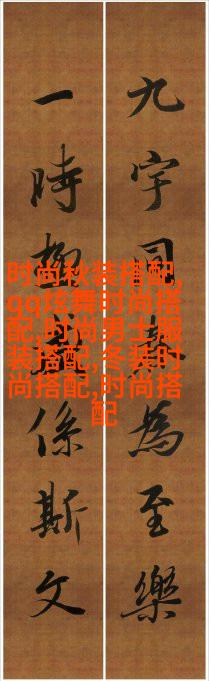 九宇同為至樂
一時係斯文
时尚秋装搭配,
qq炫舞时尚搭
配,时尚男士服
装搭配,冬装时
尚搭配,时尚搭
配